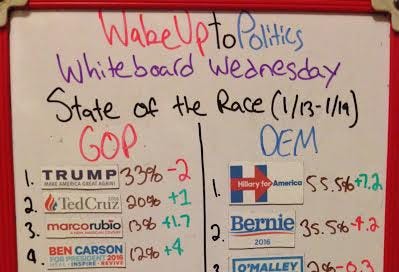 WakeUptoPolitics
Whiteboard Wednesday
State of the Race (1/13-1/19)
GOP
1. TRUMP 33% -2
MAKE AMERICA GREAT AGAIN!
2. TedCruz 20% +1
3. marcorubio 13% +1.7
A NEW AMERICAN CENTURY
4. BEN CARSON 12% +4
FOR PRESIDENT 2016
HEAL • INSPIRE • REVIVE
DEM
1. Hillary for America 55.5% +7.2
2. Bernie 35.5% -4.2
2016
3. O'MALLEY 2% -0.3